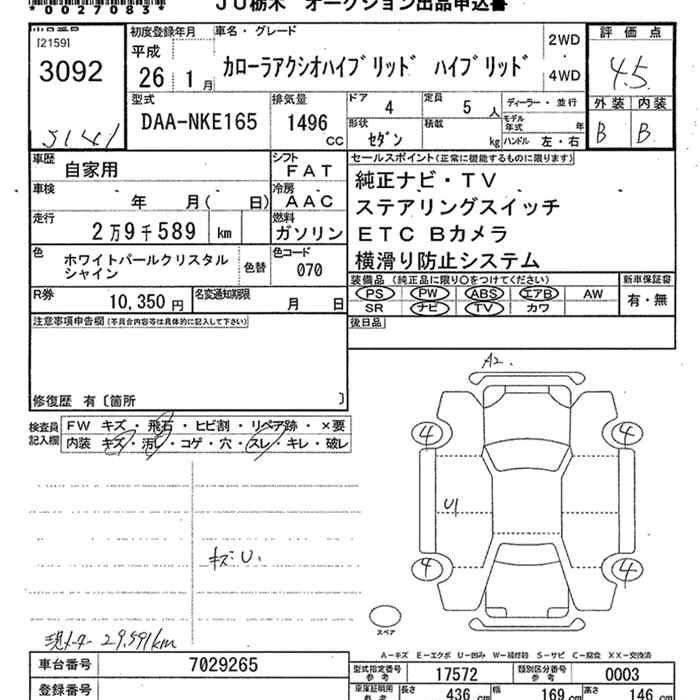 JU栃木 オークション出品申込書
*0027083*
[2159]
3092
5141
初度登録年月
平成
26 1月
車名・グレード
カローラアクシオハイブリッド ハイブリッド
2WD
・
4WD
評価点
4.5
外装 内装
B B
型式
DAA-NKE165
排気量
1496 cc
ドア 4
定員 5 人
ディーラー・並行
モデル年式 年
形状 セダン
積載 kg
ハンドル 左・右
車歴 自家用
シフト FAT
車検 年 月( 日)
冷房 AAC
走行 2万9千589 km
燃料 ガソリン
色 ホワイトパールクリスタルシャイン
色替
色コード 070
R券 10,350円
名変通知期限 月 日
セールスポイント(正常に機能するものに限ります)
純正ナビ・TV
ステアリングスイッチ
ETC Bカメラ
横滑り防止システム
装備品(純正品に限り○をつけてください)
PS PW ABS エアB AW
SR ナビ TV カワ
新車保証書
有・無
後日品
注意事項申告欄(不具合内容等は具体的に記入して下さい)
修復歴 有〔箇所 〕
検査員記入欄
FW キズ・飛石・ヒビ割・リペア跡・×要
内装 キズ・汚レ・コゲ・穴・スレ・キレ・破レ
キズ U.
現メーター 29,591km
A2.
4 4
U1
4 4
スペア
A−キズ E−エクボ U−凹み W−補修跡 S−サビ C−腐食 XX−交換済
車台番号 7029265
登録番号
型式指定番号参考 17572
類別区分番号参考 0003
車庫証明用参考
長さ 436 cm
幅 169 cm
高さ 146 cm